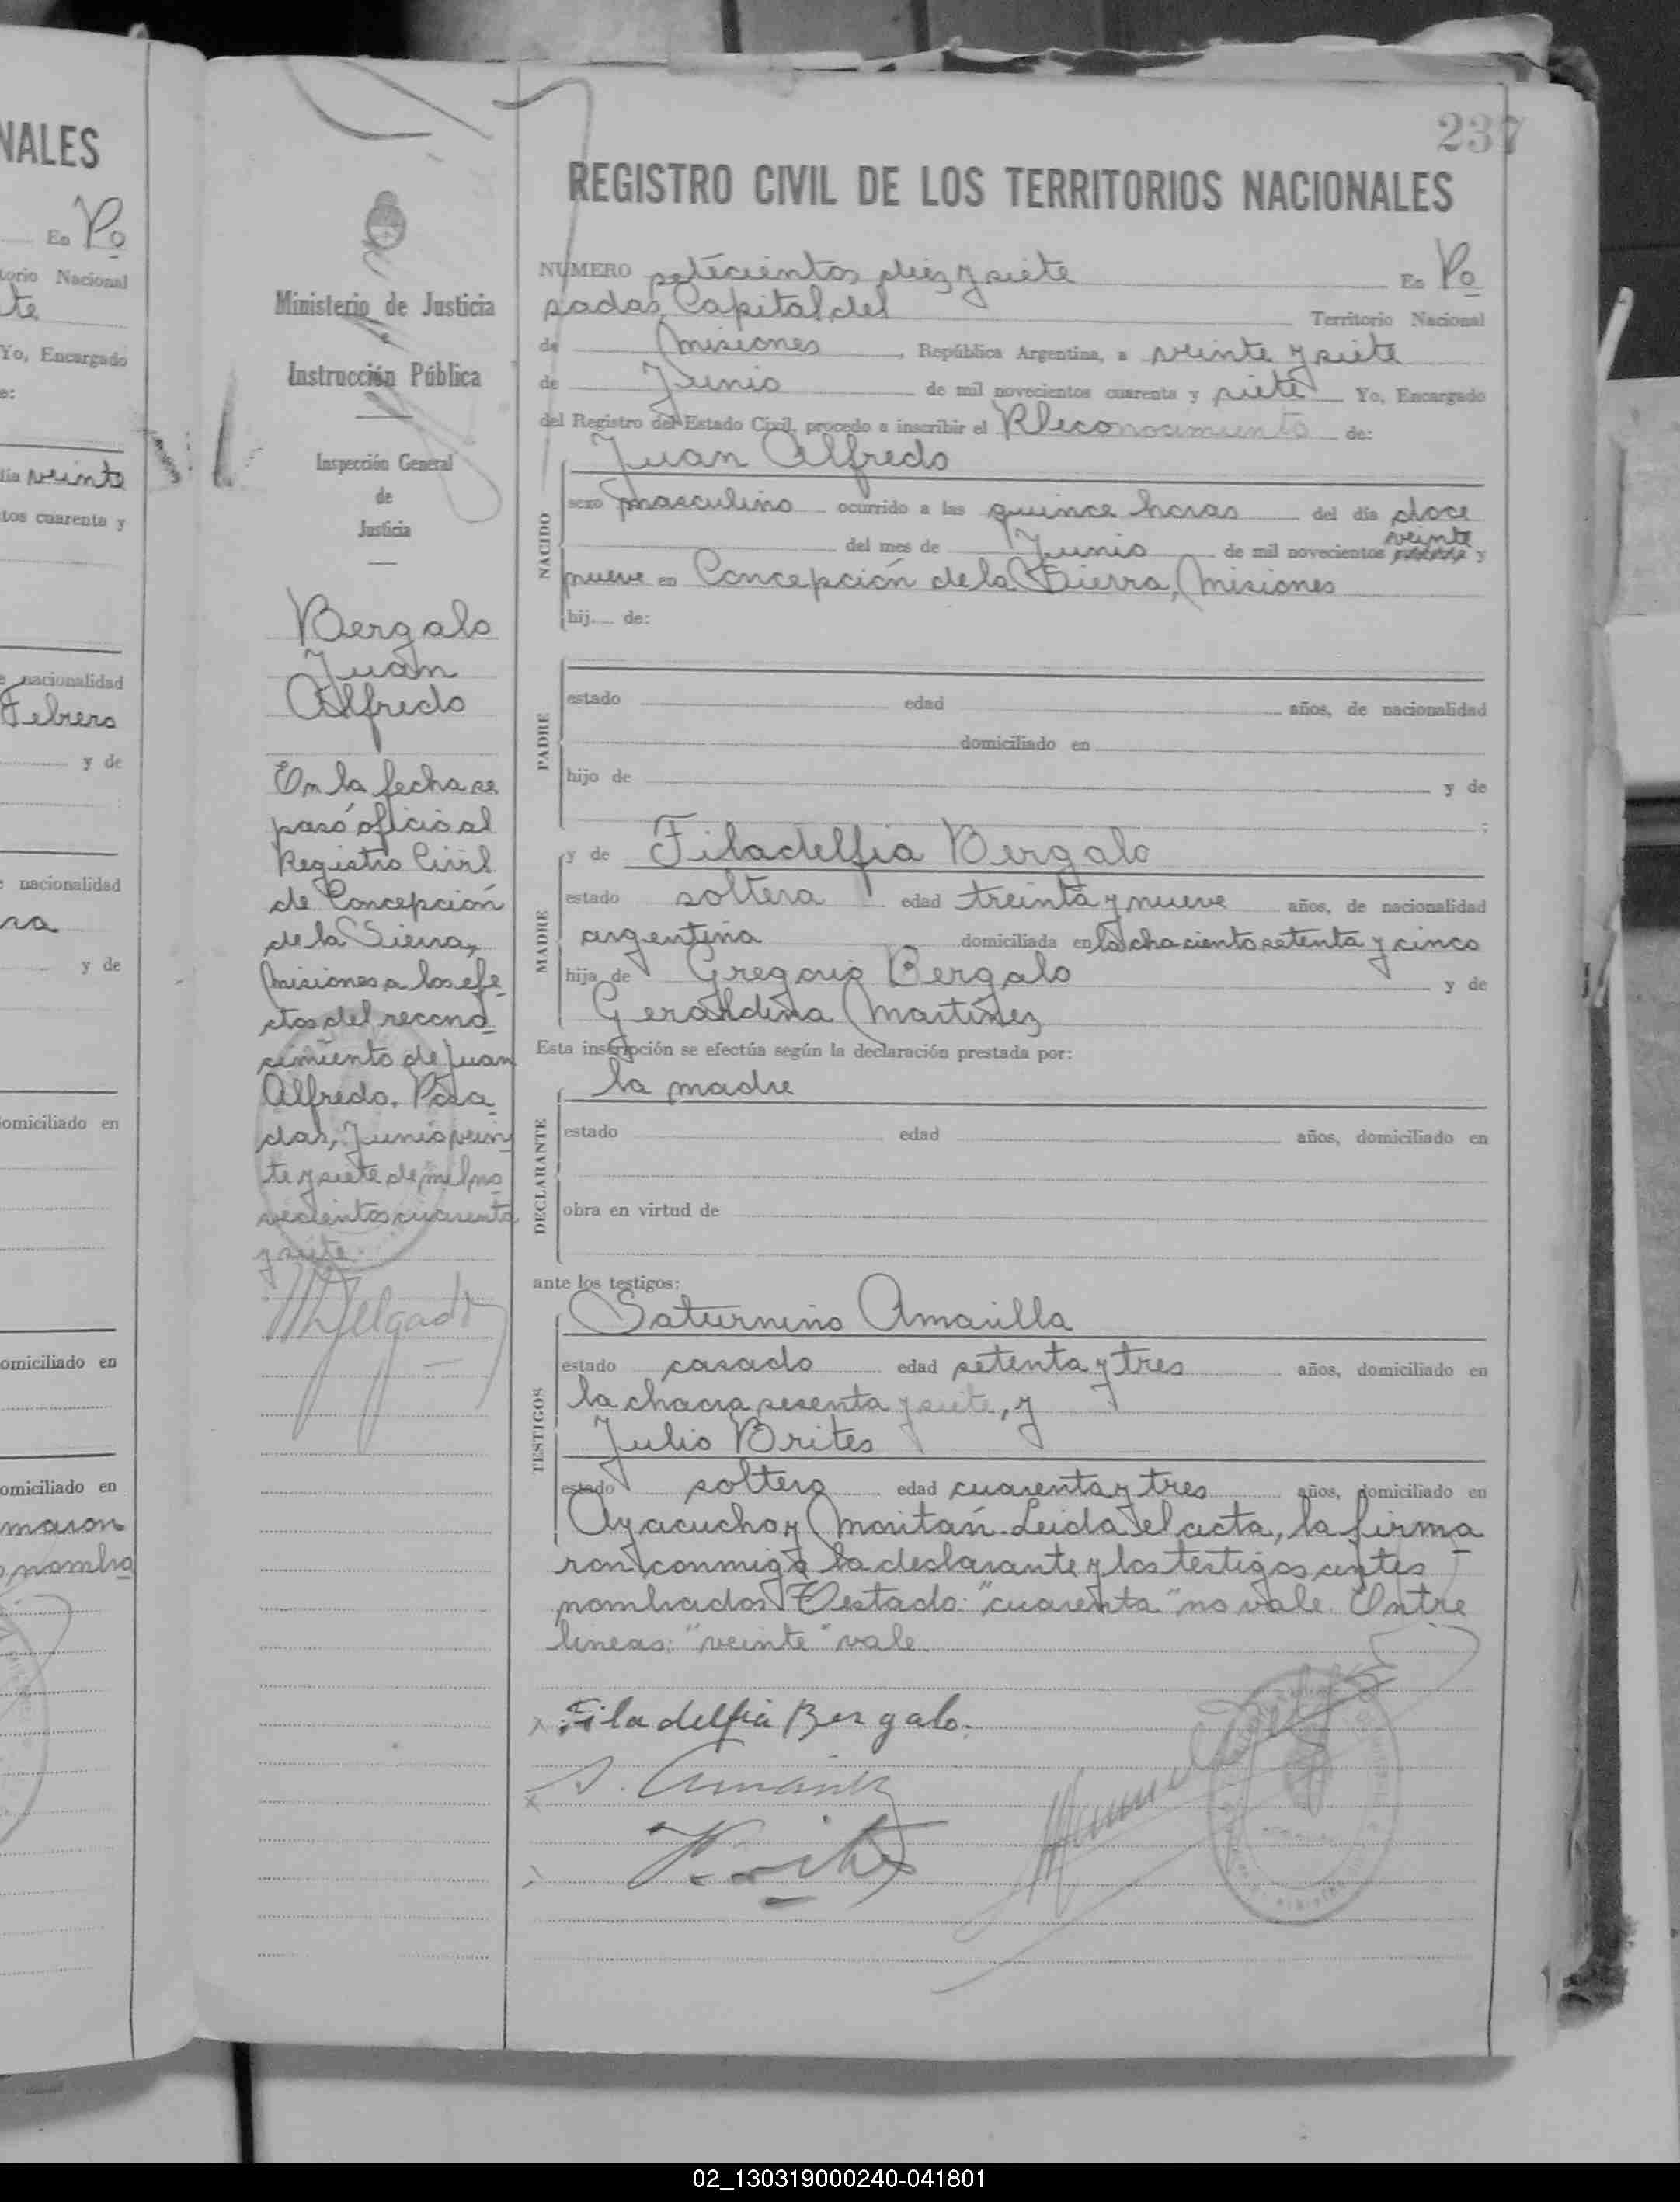 NALES
En Po
torio Nacional
te
Yo, Encargado
e:
día veinte
tos cuarenta y
e nacionalidad
Febrero
y de
e nacionalidad
y de
omiciliado en
omiciliado en
omiciliado en
maron
nombra
Ministerio de Justicia
e
Instrucción Pública
Inspección General
de
Justicia
Bergalo
Juan
Alfredo
En la fecha se
pasó oficio al
Registro Civil
de Concepción
de la Sierra,
Misiones a los efe
ctos del recono
cimiento de Juan
Alfredo. Posa
das, Junio vein
te y siete de mil no
vecientos cuarenta
y siete.
MDelgado
237
REGISTRO CIVIL DE LOS TERRITORIOS NACIONALES
NUMERO setecientos diez y siete En Po
sadas, Capital del Territorio Nacional
de Misiones, República Argentina, a veinte y siete
de Junio de mil novecientos cuarenta y siete Yo, Encargado
del Registro del Estado Civil, procedo a inscribir el Reconocimiento de:
Juan Alfredo
NACIDO
sexo masculino ocurrido a las quince horas del día doce
veinte
del mes de Junio de mil novecientos cuarenta y
nueve en Concepción de la Sierra, Misiones
hij... de:
PADRE
estado edad años, de nacionalidad
domiciliado en
hijo de y de
;
MADRE
y de Filadelfia Bergalo
estado soltera edad treinta y nueve años, de nacionalidad
argentina domiciliada en la cha ciento setenta y cinco
hija de Gregorio Bergalo y de
Geraldina Martínez
Esta inscripción se efectúa según la declaración prestada por:
DECLARANTE
la madre
estado edad años, domiciliado en
obra en virtud de
ante los testigos:
TESTIGOS
Saturnino Amarilla
estado casado edad setenta y tres años, domiciliado en
la chacra sesenta y siete, y
Julio Brites
estado soltero edad cuarenta y tres años, domiciliado en
Ayacucho y Moritán. Leida el acta, la firma
ron conmigo la declarante y los testigos antes
nombrados. Testado: "cuarenta" no vale. Entre
lineas: "veinte" vale.
Filadelfia Bergalo.
S. Amarilla
02_130319000240-041801